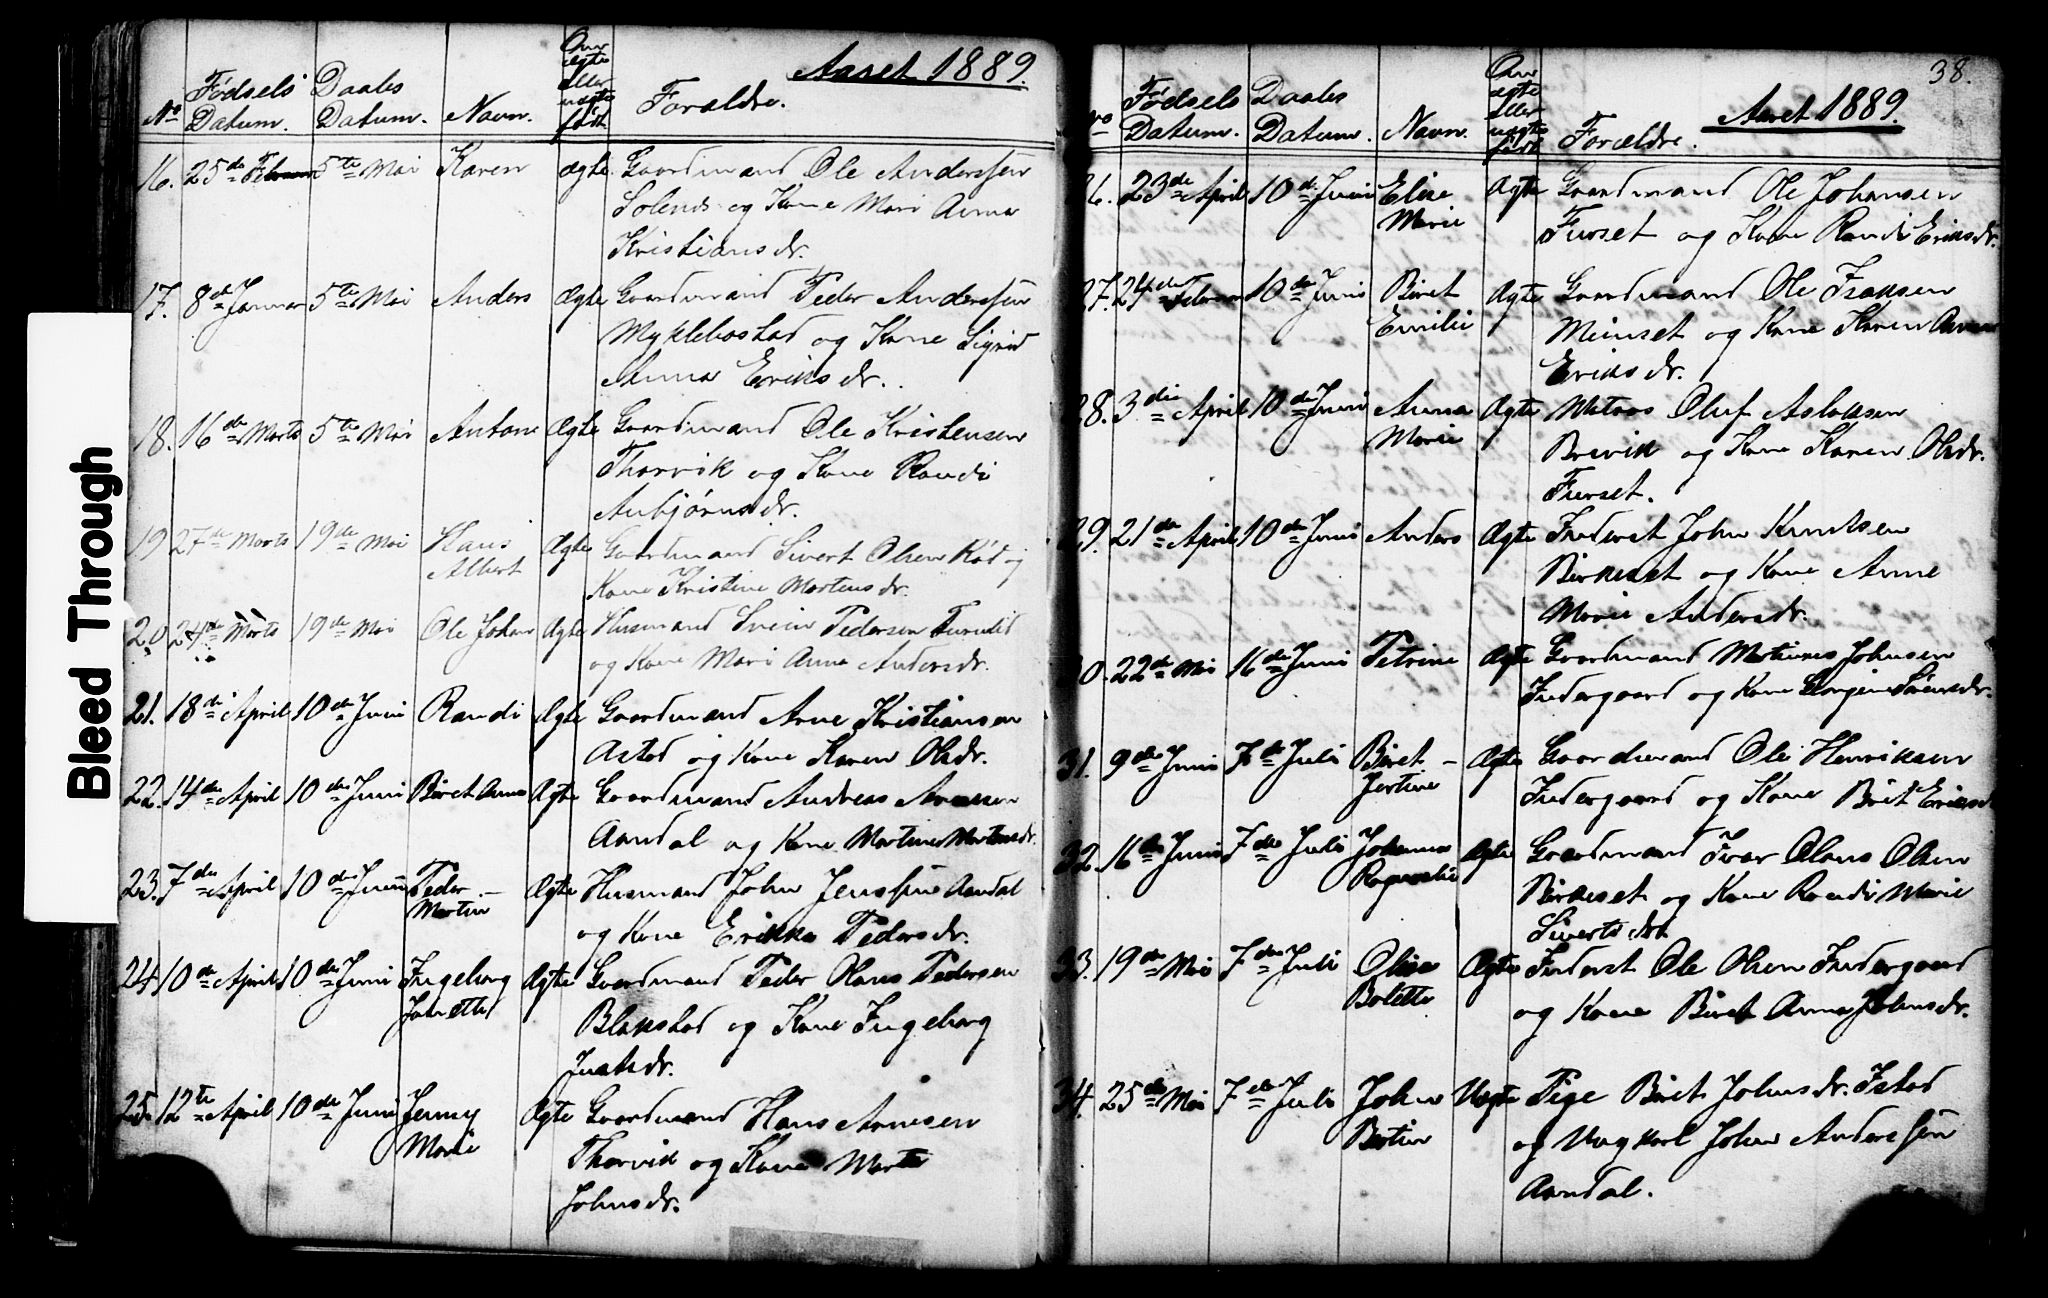 Bleed Through
Aaret 1889.
No Fødsels Datum. Daabs Datum. Navn. Om ægte eller uægte født Forældre.
16. 25de Februar 5te Mai Karen Ægte Gaardmand Ole Anderssen
Solends og Kone Mari Anna
Kristiansdr.
17. 8de Januar 5te Mai Anders Ægte Gaardmand Peder Anderssen
Myklebostad og Kone Sigrid
Anna Eriksdr.
18. 16de Marts 5te Mai Antone Ægte Gaardmand Ole Kristensen
Thorvik og Kone Randi
Anbjørnsdr.
19 27de Marts 19de Mai Hans Ægte Gaardmand Sivert Olsen Rød og
Albert Kone Kristine Martensdr.
20. 24de Marts 19de Mai Ole Johan Ægte Husmand Svein Pedersen
og Kone Mari Anna Andersdr.
21. 18de April 10de Juni Randi Ægte Gaardmand Arne Kristiansen
Astad og Kone Karen Olsdr.
22. 14de April 10de Juni Beret Anna Ægte Gaardmand Andreas Arnesen
Aandal og Kone Martine Martinsdr.
23. 7de April 10de Juni Peder – Ægte Husmand John Jenssen Aandal
Martin og Kone Erikka Pedersdr.
24. 10de April 10de Juni Ingeborg Ægte Gaardmand Peder Olaus Pedersen
Blakstad og Kone Ingeborg
25. 12te April 10de Juni Jenny Ægte Gaardmand Hans Arnesen
Marie Thorvik og Kone Marte
Johnsdr.
38.
Aaret 1889.
No Fødsels Datum. Daabs Datum. Navn. Om ægte eller uægte født Forældre.
26. 23de April 10de Juni Elise Ægte Gaardmand Ole Johansen
Marie Furset og Kone Randi Eriksdr.
27. 24de Februar 10de Juni Beret Ægte Gaardmand Ole Isaksen
Emilie Meinset og Kone Karen Anna
Eriksdr.
28. 3die April 10de Juni Anna Ægte Matros Oluf Aslaksen
Marie Brevik og Kone Karen Olsdr.
Furset.
29. 21de April 10de Juni Anders Ægte Inderst John Knutsen
Birkeset og Kone Anne
Marie Andersdr.
30. 22de Mai 16de Juni Petrine Ægte Gaardmand Martinus Johnsen
Indergaard og Kone Gurjine Sørensdr.
31. 9de Juni 7de Juli Beret – Ægte Gaardmand Ole Henriksen
Jertine Indergaard og Kone Brit Eriksd
32. 16de Juni 7de Juli Johanna Ægte Gaardmand Ivar Olaus Olsen
Birkeset og Kone Randi Marie
Sivertsdtr
33. 19de Mai 7de Juli Olise Ægte Inderst Ole Olsen Indergaard
Bolette og Kone Beret Anna Johnsdr.
34. 25de Mai 7de Juli John Uægte Pige Beret Johnsdr. Istad
Bertin og Ungkarl Johan Anderssen
Aandal.